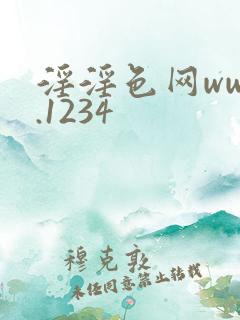 淫淫色网ww
.1234
穆克敦
未经同意禁止转载